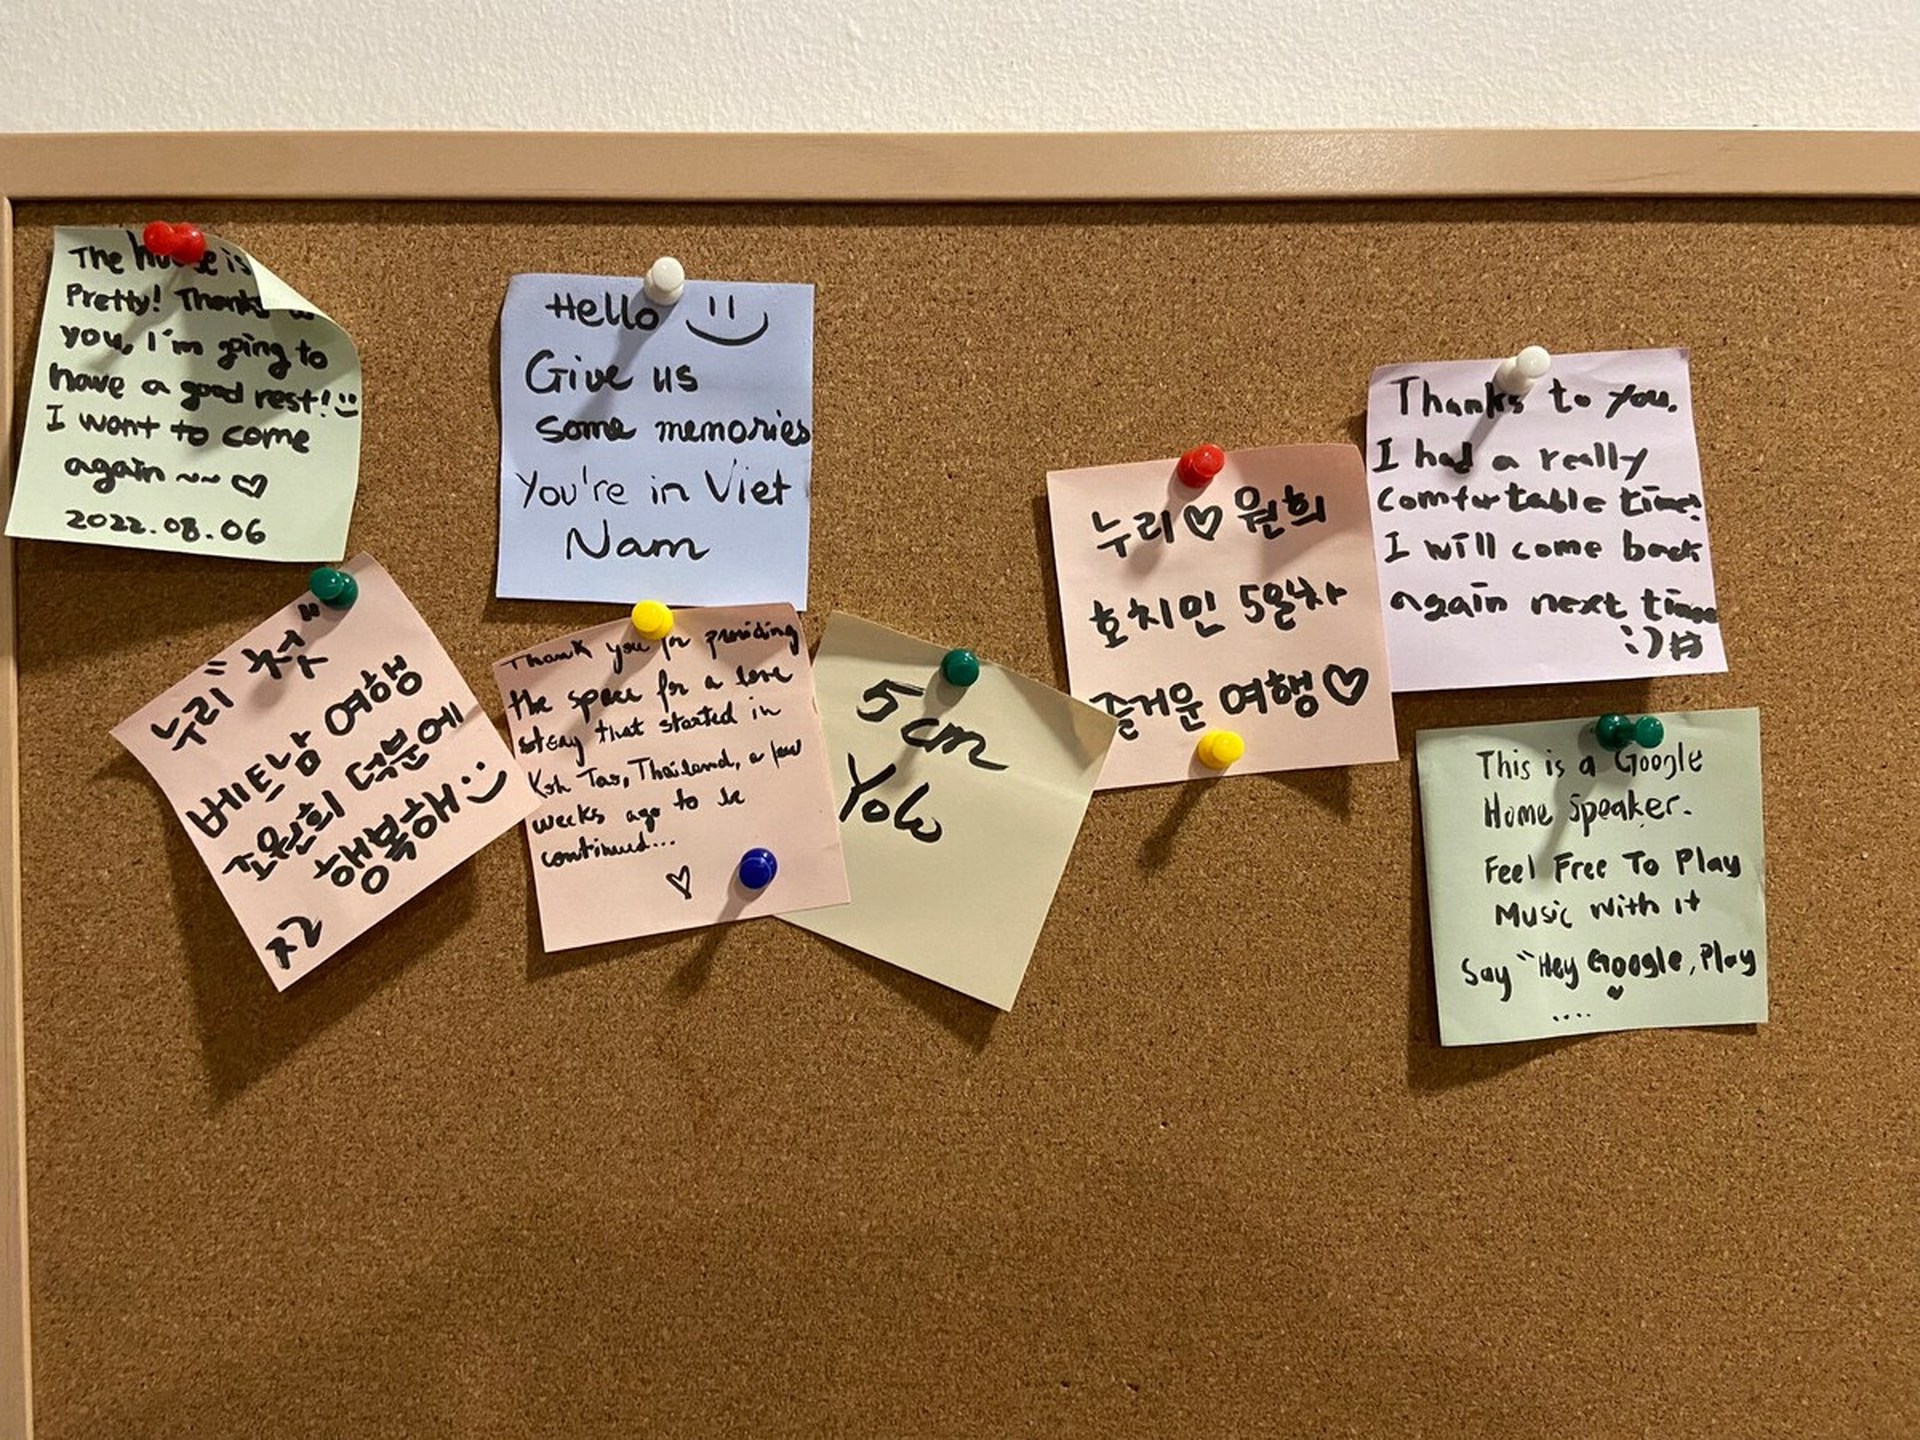 The house is
Pretty! Thanks to
you, I'm going to
have a good rest!
I want to come
again ~~ ♡
2022.08.06
Hello
Give us
some memories
You're in Viet
Nam
누리 "첫"
베트남 여행
조원희 덕분에
행복해
Thank you for providing
the space for a love
story that started in
Koh Tao, Thailand, a few
weeks ago to be
continued...
♡
5cm
Yolo
누리♡원희
호치민 5일차
즐거운 여행♡
Thanks to you.
I had a really
comfortable time.
I will come back
again next time
:)
This is a Google
Home Speaker.
Feel Free To Play
Music with it
Say "Hey Google, Play
....